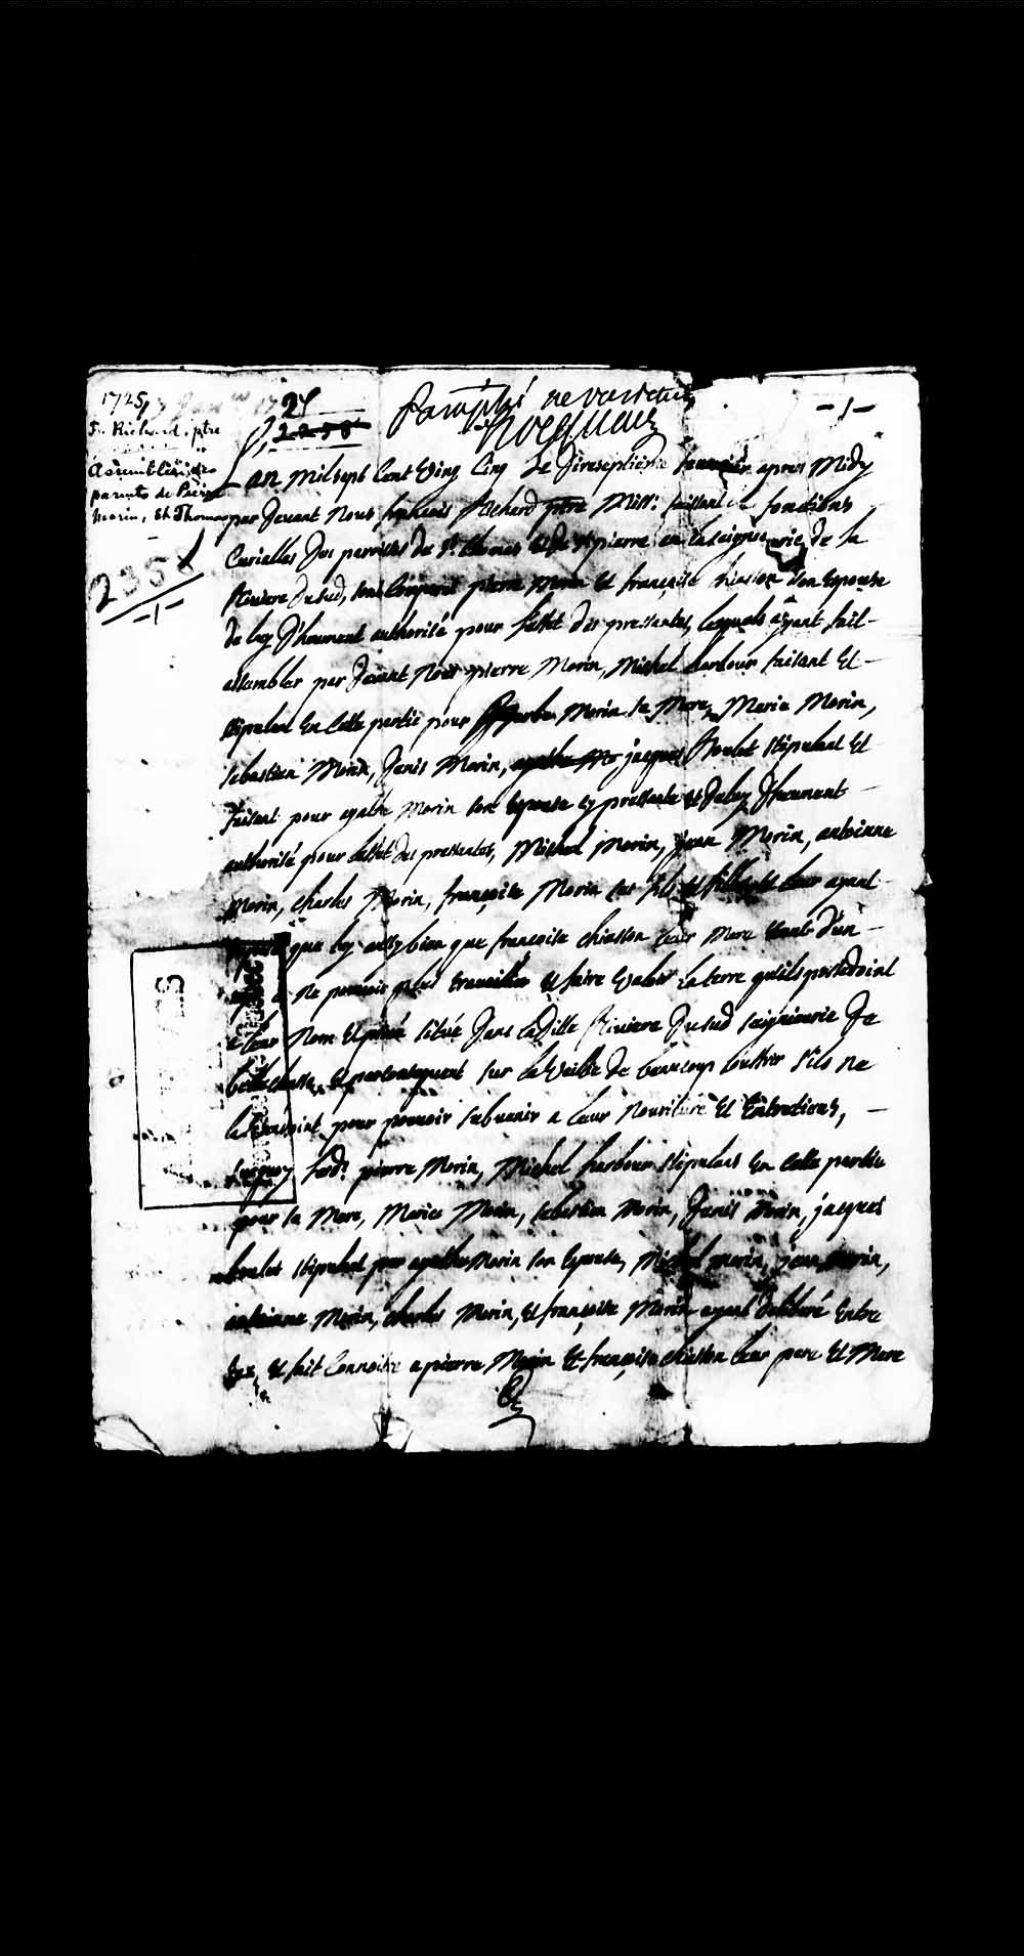 1725,
Fr. Richard, ptre
Assemblée des
parents de Pierre
Morin, St Thomas
2358
Paraphé ne varietur
Hocquart
-1-
L'an mil sept Cent Ving Cinq Le dixseptième Janvier apres Midy
par devant Nous françois Richard ptre Miss: faisant les fonctions
Curialles des parroisses de St. thomas et de St pierre en la seigneurie de la
Riviere du sud, sont Comparus pierre Morin et françoise chiasson son Epouse
de luy d'heument authorisé pour l'effet des pressentes, lesquels ayant fait
assembler par devant Nous pierre Morin, Michel harbour faisant Et
stipulant En Cette partie pour Morin sa Mere, Marie Morin,
sebastien Morin, denis Morin, jacques Boulet stipulant Et
faisant pour agathe Morin son Epouse cy pressente et de luy d'heument
authorisé pour l'effet des pressentes, Michel Morin, jean Morin, antoinne
Morin, charles Morin, françoise Morin ses fils et filles Et leur ayant
que luy aussy bien que francoise chiasson leur Mere dun
ne pouvoir plus travailler et faire Valoir La terre qu'ils possedoint
a leur Nom situé dans la ditte Riviere du sud seigneurie de
bellechasse, et par consequent sur la Veille de beaucoup souffrir s'ils ne
pour pouvoir subvenir a leur Nouriture Et Entretiens,
surquoy led. pierre Morin, Michel harbour stipulant En Cette partie
pour sa Mere, Marie Morin, sebastien Morin, denis Morin, jacques
boulet stipulant pour agathe Morin son Epouse, Michel morin, jean Morin,
antoinne Morin, charles Morin, et françoise Morin ayant deliberé Entre
Eux, et fait Connoitre a pierre Morin et françoise chiasson leur pere Et Mere